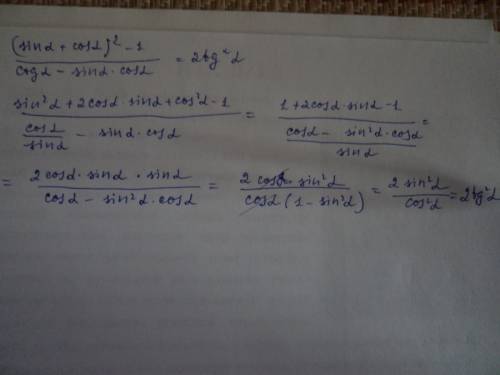 (sinα + cosα)² - 1 / ctgα - sinα · cosα = 2tg²α
sin²α + 2cosα · sinα + cos²α - 1 / cosα/sinα - sinα · cosα = 1 + 2cosα · sinα - 1 / cosα - sin²α · cosα / sinα =
= 2cosα · sinα · sinα / cosα - sin²α · cosα = 2cosα · sin²α / cosα (1 - sin²α) = 2 sin²α / cos²α = 2tg²α